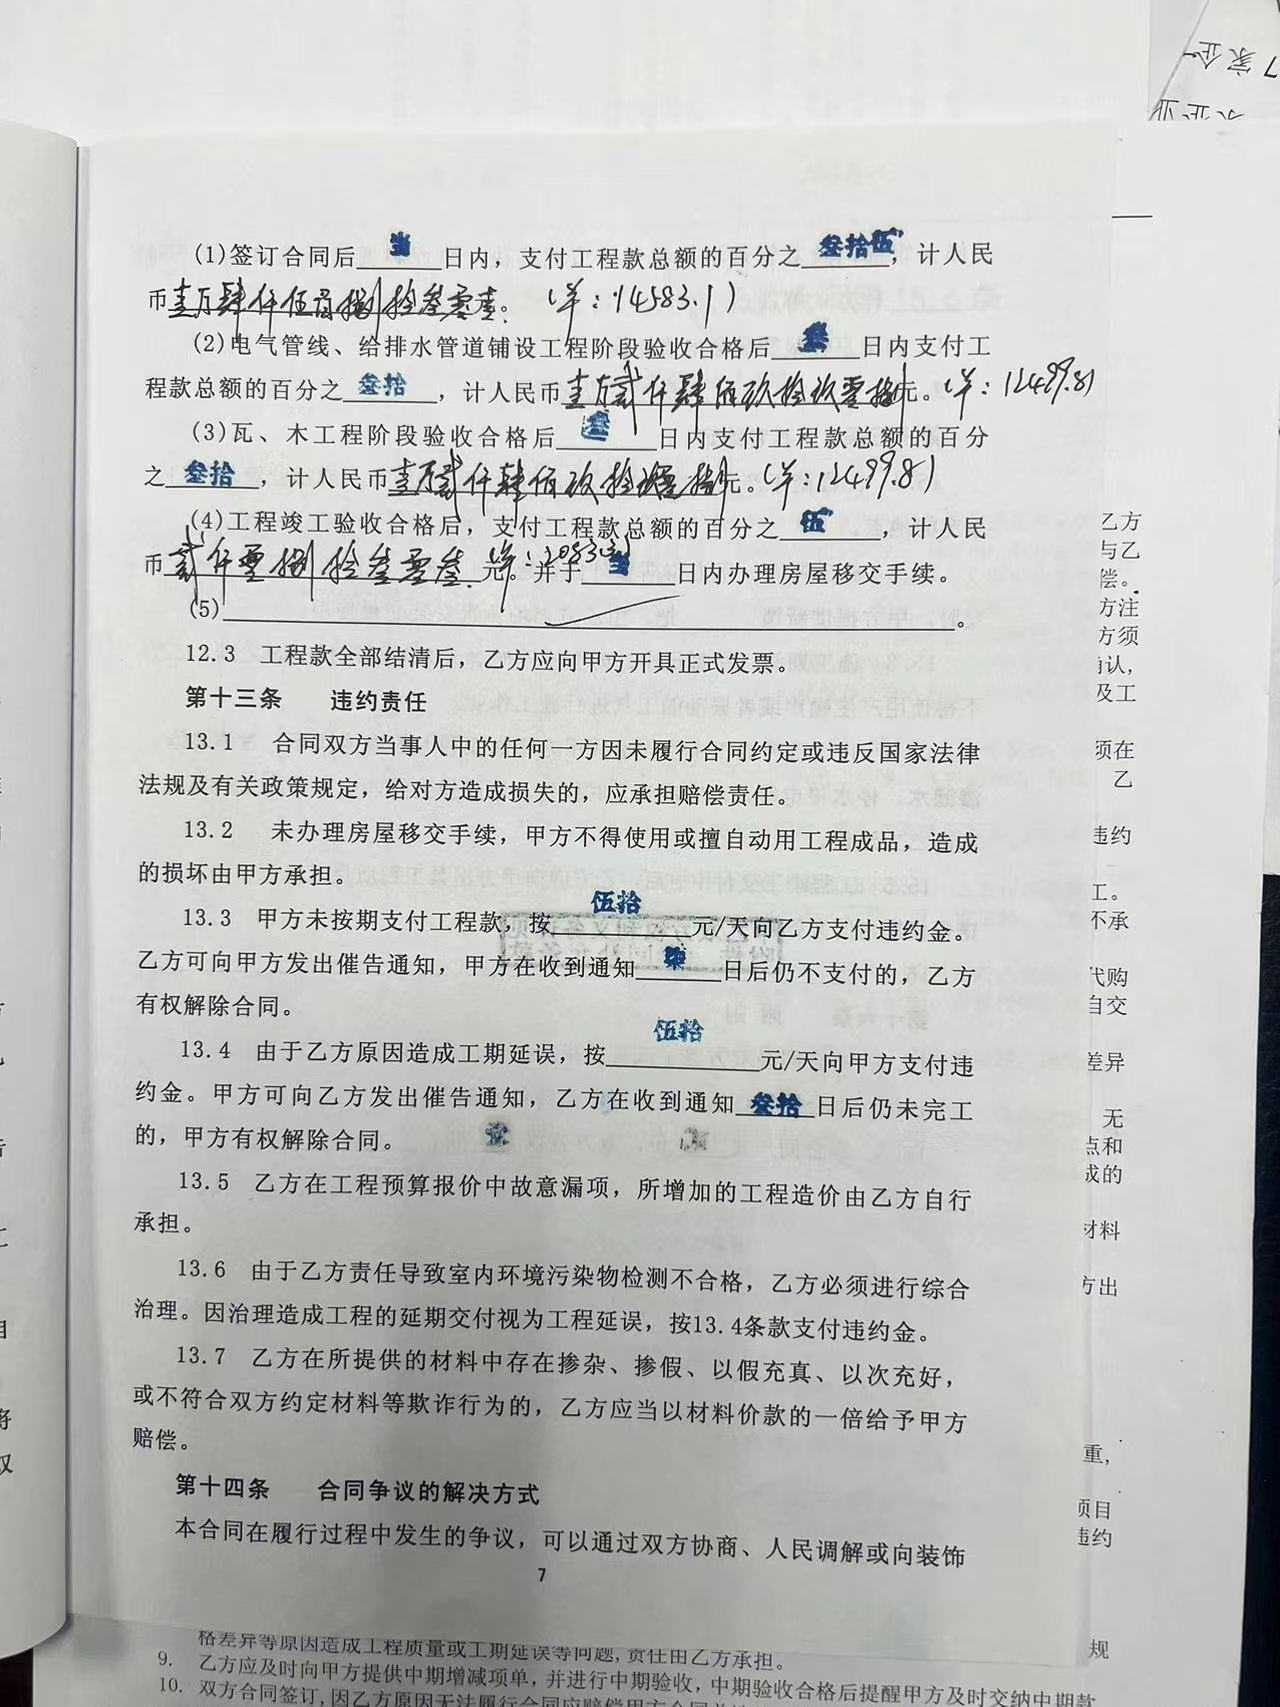 7 家企
(1)签订合同后 当 日内，支付工程款总额的百分之 叁拾伍 ，计人民
币壹万肆仟伍百捌拾叁零壹。（羊：14583.1）
(2)电气管线、给排水管道铺设工程阶段验收合格后 叁 日内支付工
程款总额的百分之 叁拾 ，计人民币壹万贰仟肆佰玖拾玖零捌元。（羊：12499.81
(3)瓦、木工程阶段验收合格后 叁 日内支付工程款总额的百分
之 叁拾 ，计人民币壹万贰仟肆佰玖拾玖零捌元。（羊：12499.81）
(4)工程竣工验收合格后，支付工程款总额的百分之 伍 ，计人民
币贰仟零捌拾叁零叁 元。羊：2083.31并于 当 日内办理房屋移交手续。
(5) 。
12.3 工程款全部结清后，乙方应向甲方开具正式发票。
第十三条 违约责任
13.1 合同双方当事人中的任何一方因未履行合同约定或违反国家法律
法规及有关政策规定，给对方造成损失的，应承担赔偿责任。
13.2 未办理房屋移交手续，甲方不得使用或擅自动用工程成品，造成
的损坏由甲方承担。
13.3 甲方未按期支付工程款，按 伍拾 元/天向乙方支付违约金。
乙方可向甲方发出催告通知，甲方在收到通知 柒 日后仍不支付的，乙方
有权解除合同。
13.4 由于乙方原因造成工期延误，按 伍拾 元/天向甲方支付违
约金。甲方可向乙方发出催告通知，乙方在收到通知 叁拾 日后仍未完工
的，甲方有权解除合同。
13.5 乙方在工程预算报价中故意漏项，所增加的工程造价由乙方自行
承担。
13.6 由于乙方责任导致室内环境污染物检测不合格，乙方必须进行综合
治理。因治理造成工程的延期交付视为工程延误，按13.4条款支付违约金。
13.7 乙方在所提供的材料中存在掺杂、掺假、以假充真、以次充好，
或不符合双方约定材料等欺诈行为的，乙方应当以材料价款的一倍给予甲方
赔偿。
第十四条 合同争议的解决方式
本合同在履行过程中发生的争议，可以通过双方协商、人民调解或向装饰
7
乙方
与乙
偿。
方注
方须
认，
及工
须在
乙
违约
工。
不承
代购
自交
差异
无
点和
成的
材料
方出
重，
项目
违约
规
格差异等原因造成工程质量或工期延误等问题，责任由乙方承担。
9. 乙方应及时向甲方提供中期增减项单，并进行中期验收，中期验收合格后提醒甲方及时交纳中期款
10. 双方合同签订，因乙方原因无法履行合同应赔偿甲方合同